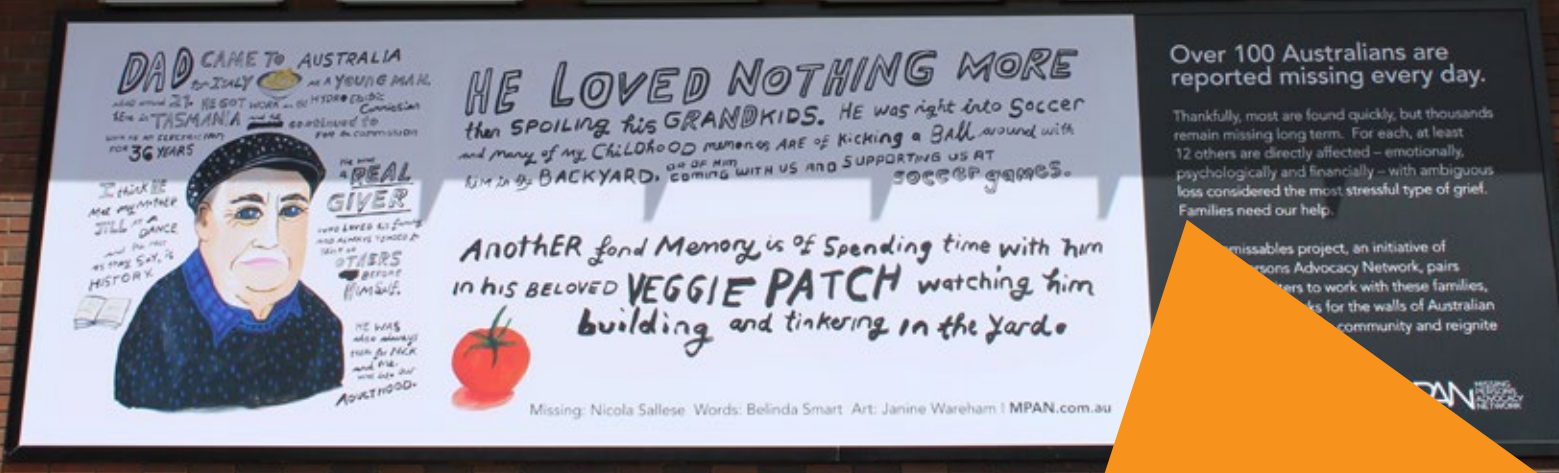 DAD CAME TO AUSTRALIA
from ITALY AS A YOUNG MAN.
HE GOT WORK HYDRO Electric
TASMANIA continued to
FOR 36 YEARS
I think HE
Met my Mother
JILL AT A
DANCE
and the rest
AS they SAY, is
HISTORY.
He was
A REAL
GIVER
who LOVED his family
AND ALWAYS TENDED to
OTHERS
BEFORE
Himself.
HE WAS
also always
ADULTHOOD.
HE LOVED NOTHING MORE
then SPOILING his GRANDKIDS. HE was right into Soccer
and many of my ChiLDhooD memories ARE of Kicking a BALL around with
him in the BACKYARD, OR OF HIM coming WITH US AND SUPPORTING US AT
soccer games.
AnothER fond Memory is of Spending time with him
in his BELOVED VEGGIE PATCH watching him
building and tinkering in the yard.
Missing: Nicola Sallese Words: Belinda Smart Art: Janine Wareham | MPAN.com.au
Over 100 Australians are
reported missing every day.
Thankfully, most are found quickly, but thousands
remain missing long term. For each, at least
12 others are directly affected – emotionally,
psychologically and financially – with ambiguous
loss considered the most stressful type of grief.
Families need our help.
missables project, an initiative of
Advocacy Network, pairs
to work with these families,
for the walls of Australian
community and reignite
MISSING
PERSONS
ADVOCACY
NETWORK